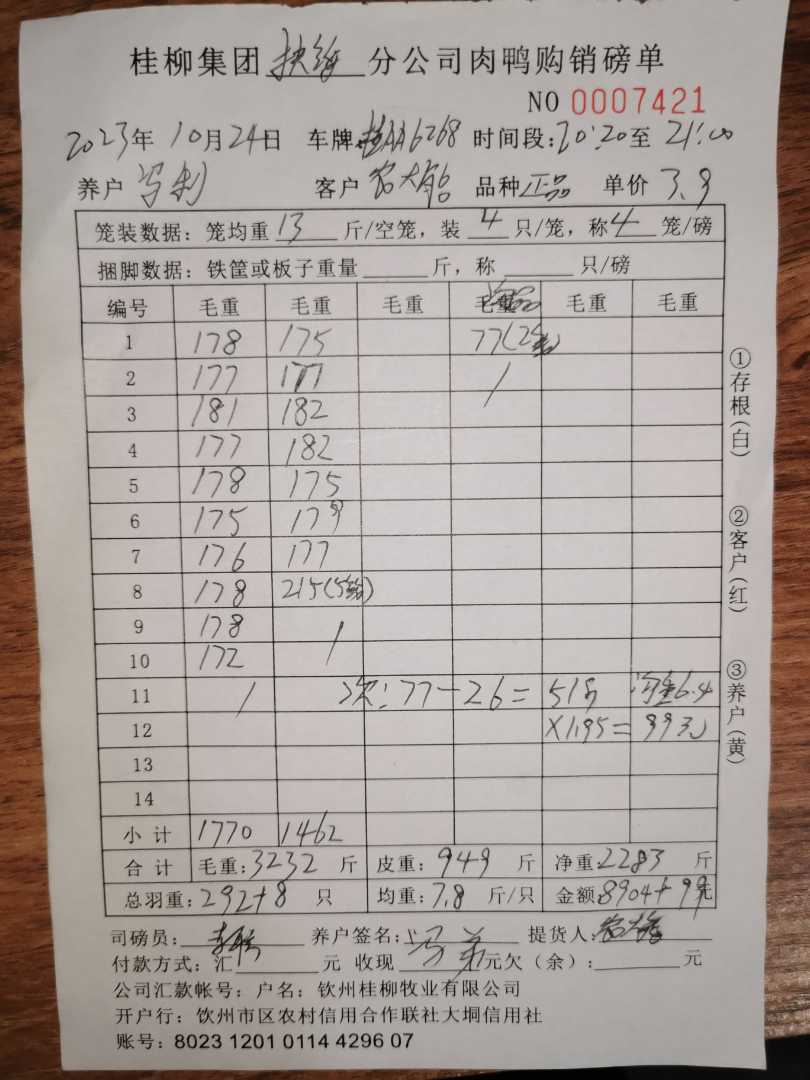 桂柳集团 扶绥 分公司肉鸭购销磅单
NO 0007421
2023年 10月24日 车牌:桂AA6268 时间段:20:20至 21:00
养户 客户 农大 品种 正品 单价 3.9
笼装数据: 笼均重 13 斤/空笼, 装 4 只/笼, 称 4 笼/磅
捆脚数据: 铁筐或板子重量 斤, 称 只/磅
编号 毛重 毛重 毛重 毛重 毛重 毛重
1 178 175 77(2笼)
2 177 177 /
3 181 182
4 177 182
5 178 175
6 175 179
7 176 177
8 178 215(5笼)
9 178 /
10 172
11 / 次:77-26= 51斤 均重6.4
12 X1.95= 99元
13
14
小计 1770 1462
合计 毛重:3232 斤 皮重: 949 斤 净重:2283 斤
总羽重:292+8 只 均重:7.8 斤/只 金额:8904+99元
司磅员: 养户签名: 提货人:农大
付款方式: 汇 元 收现 元欠(余): 元
公司汇款帐号: 户名: 钦州桂柳牧业有限公司
开户行: 钦州市区农村信用合作联社大垌信用社
账号: 8023 1201 0114 4296 07
①存根(白)
②客户(红)
③养户(黄)